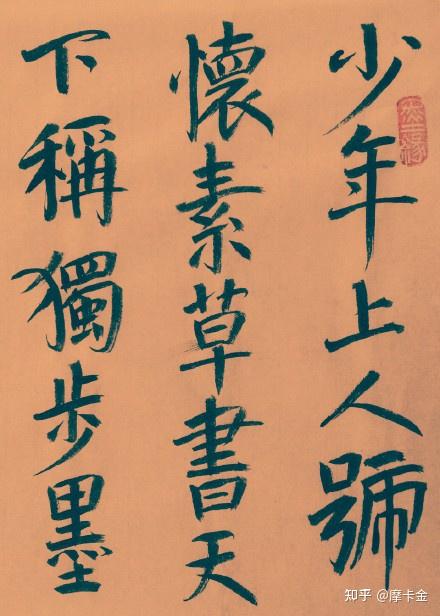 少年上人號
懷素草書天
下稱獨步墨
知乎 @摩卡金